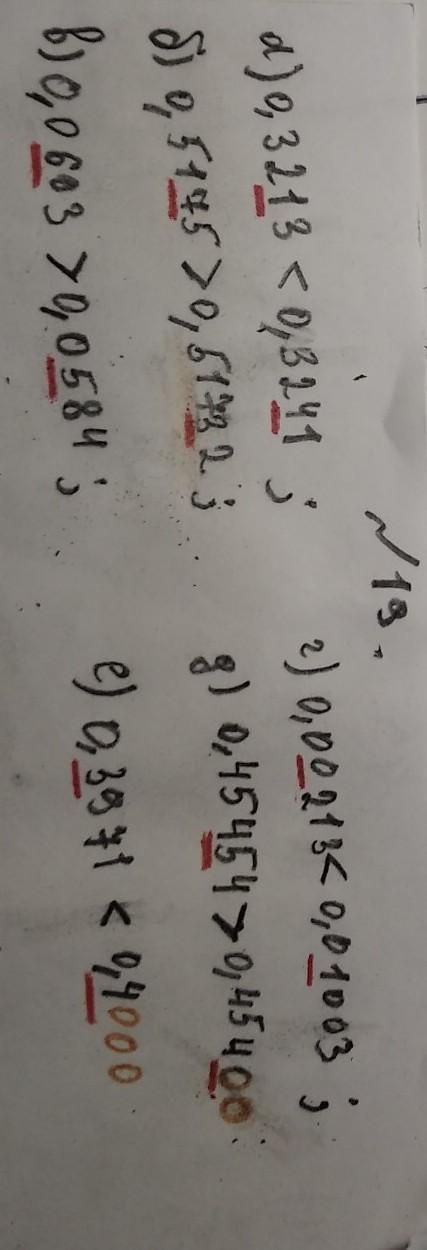 №19.
а) 0,3213 < 0,3241 ;
б) 0,5175 > 0,51732 ;
в) 0,0603 > 0,0584 ;
г) 0,00213 < 0,01003 ;
д) 0,45454 > 0,45400
е) 0,3971 < 0,4000